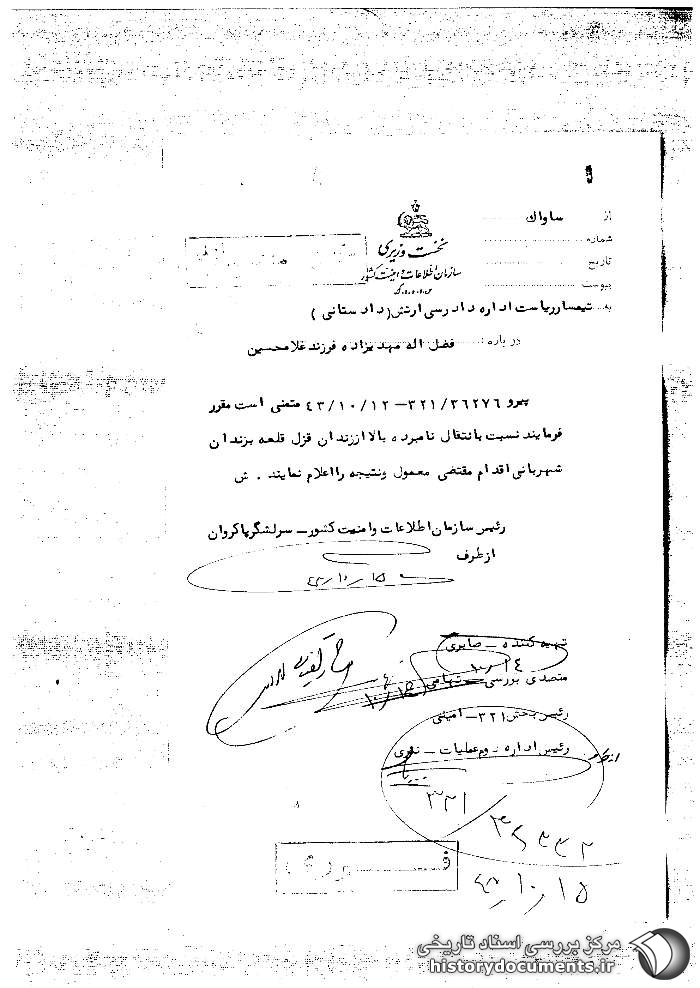 از ساواك
شماره
تاریخ
پیوست
نخست وزیری
سازمان اطلاعات و امنیت کشور
س.ا.و.ا.ک
به تیمسار ریاست اداره دادرسی ارتش (دادستانی)
در باره: فضل اله مهدیزاده فرزند غلامحسین
پیرو ۳۲۱/۳۶۲۷۶–۴۳/۱۰/۱۲ متمنی است مقرر
فرمایند نسبت بانتقال نامبرده بالا از زندان قزل قلعه بزندان
شهربانی اقدام مقتضی معمول ونتیجه را اعلام نمایند . ش
رئیس سازمان اطلاعات وامنیت کشور – سرلشگر پاکروان
از طرف
۴۳/۱۰/۱۵
تهیه کننده – صابری
۱۰/۱۴
متصدی بررسی – تهامی
رئیس بخش ۳۲۱ – امینی
رئیس اداره دوم عملیات –
از طرف
۳۲۱/
۴۳/۱۰/۱۵
فوری
مرکز بررسی اسناد تاریخی
historydocuments.ir